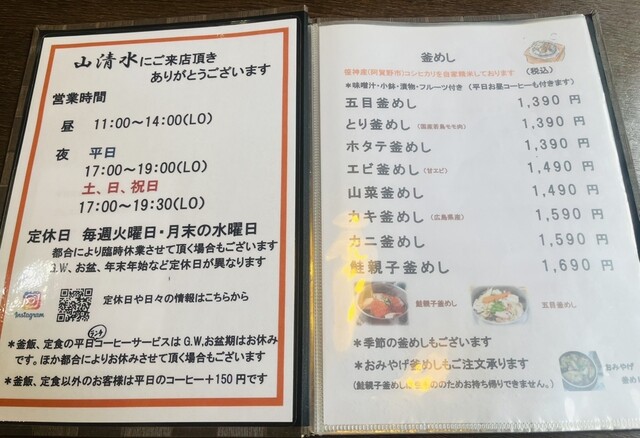 山清水にご来店頂き
ありがとうございます
営業時間
昼 11:00～14:00(LO)
夜 平日
17:00～19:00(LO)
土、日、祝日
17:00～19:30(LO)
定休日 毎週火曜日・月末の水曜日
都合により臨時休業させて頂く場合もございます
G.W、お盆、年末年始など定休日が異なります
Instagram
定休日や日々の情報はこちらから
ランチ
＊釜飯、定食の平日コーヒーサービスは G.W,お盆期はお休み
です。ほか都合によりお休みさせて頂く場合もございます
＊釜飯、定食以外のお客様は平日のコーヒー＋150円です
釜めし
(阿賀野市)コシヒカリを自家精米しております
(税込)
＊味噌汁・小鉢・漬物・フルーツ付き (平日お昼コーヒーも付きます)
五目釜めし 1,390 円
とり釜めし 1,390 円
ホタテ釜めし 1,390 円
エビ釜めし (甘エビ) 1,490 円
山菜釜めし 1,490 円
カキ釜めし (広島県産) 1,590 円
カニ釜めし 1,590 円
鮭親子釜めし 1,690 円
鮭親子釜めし
五目釜めし
＊季節の釜めしもございます
＊おみやげ釜めしもご注文承ります
(鮭親子釜めしは のためお持ち帰りできません。)
おみやげ
釜め